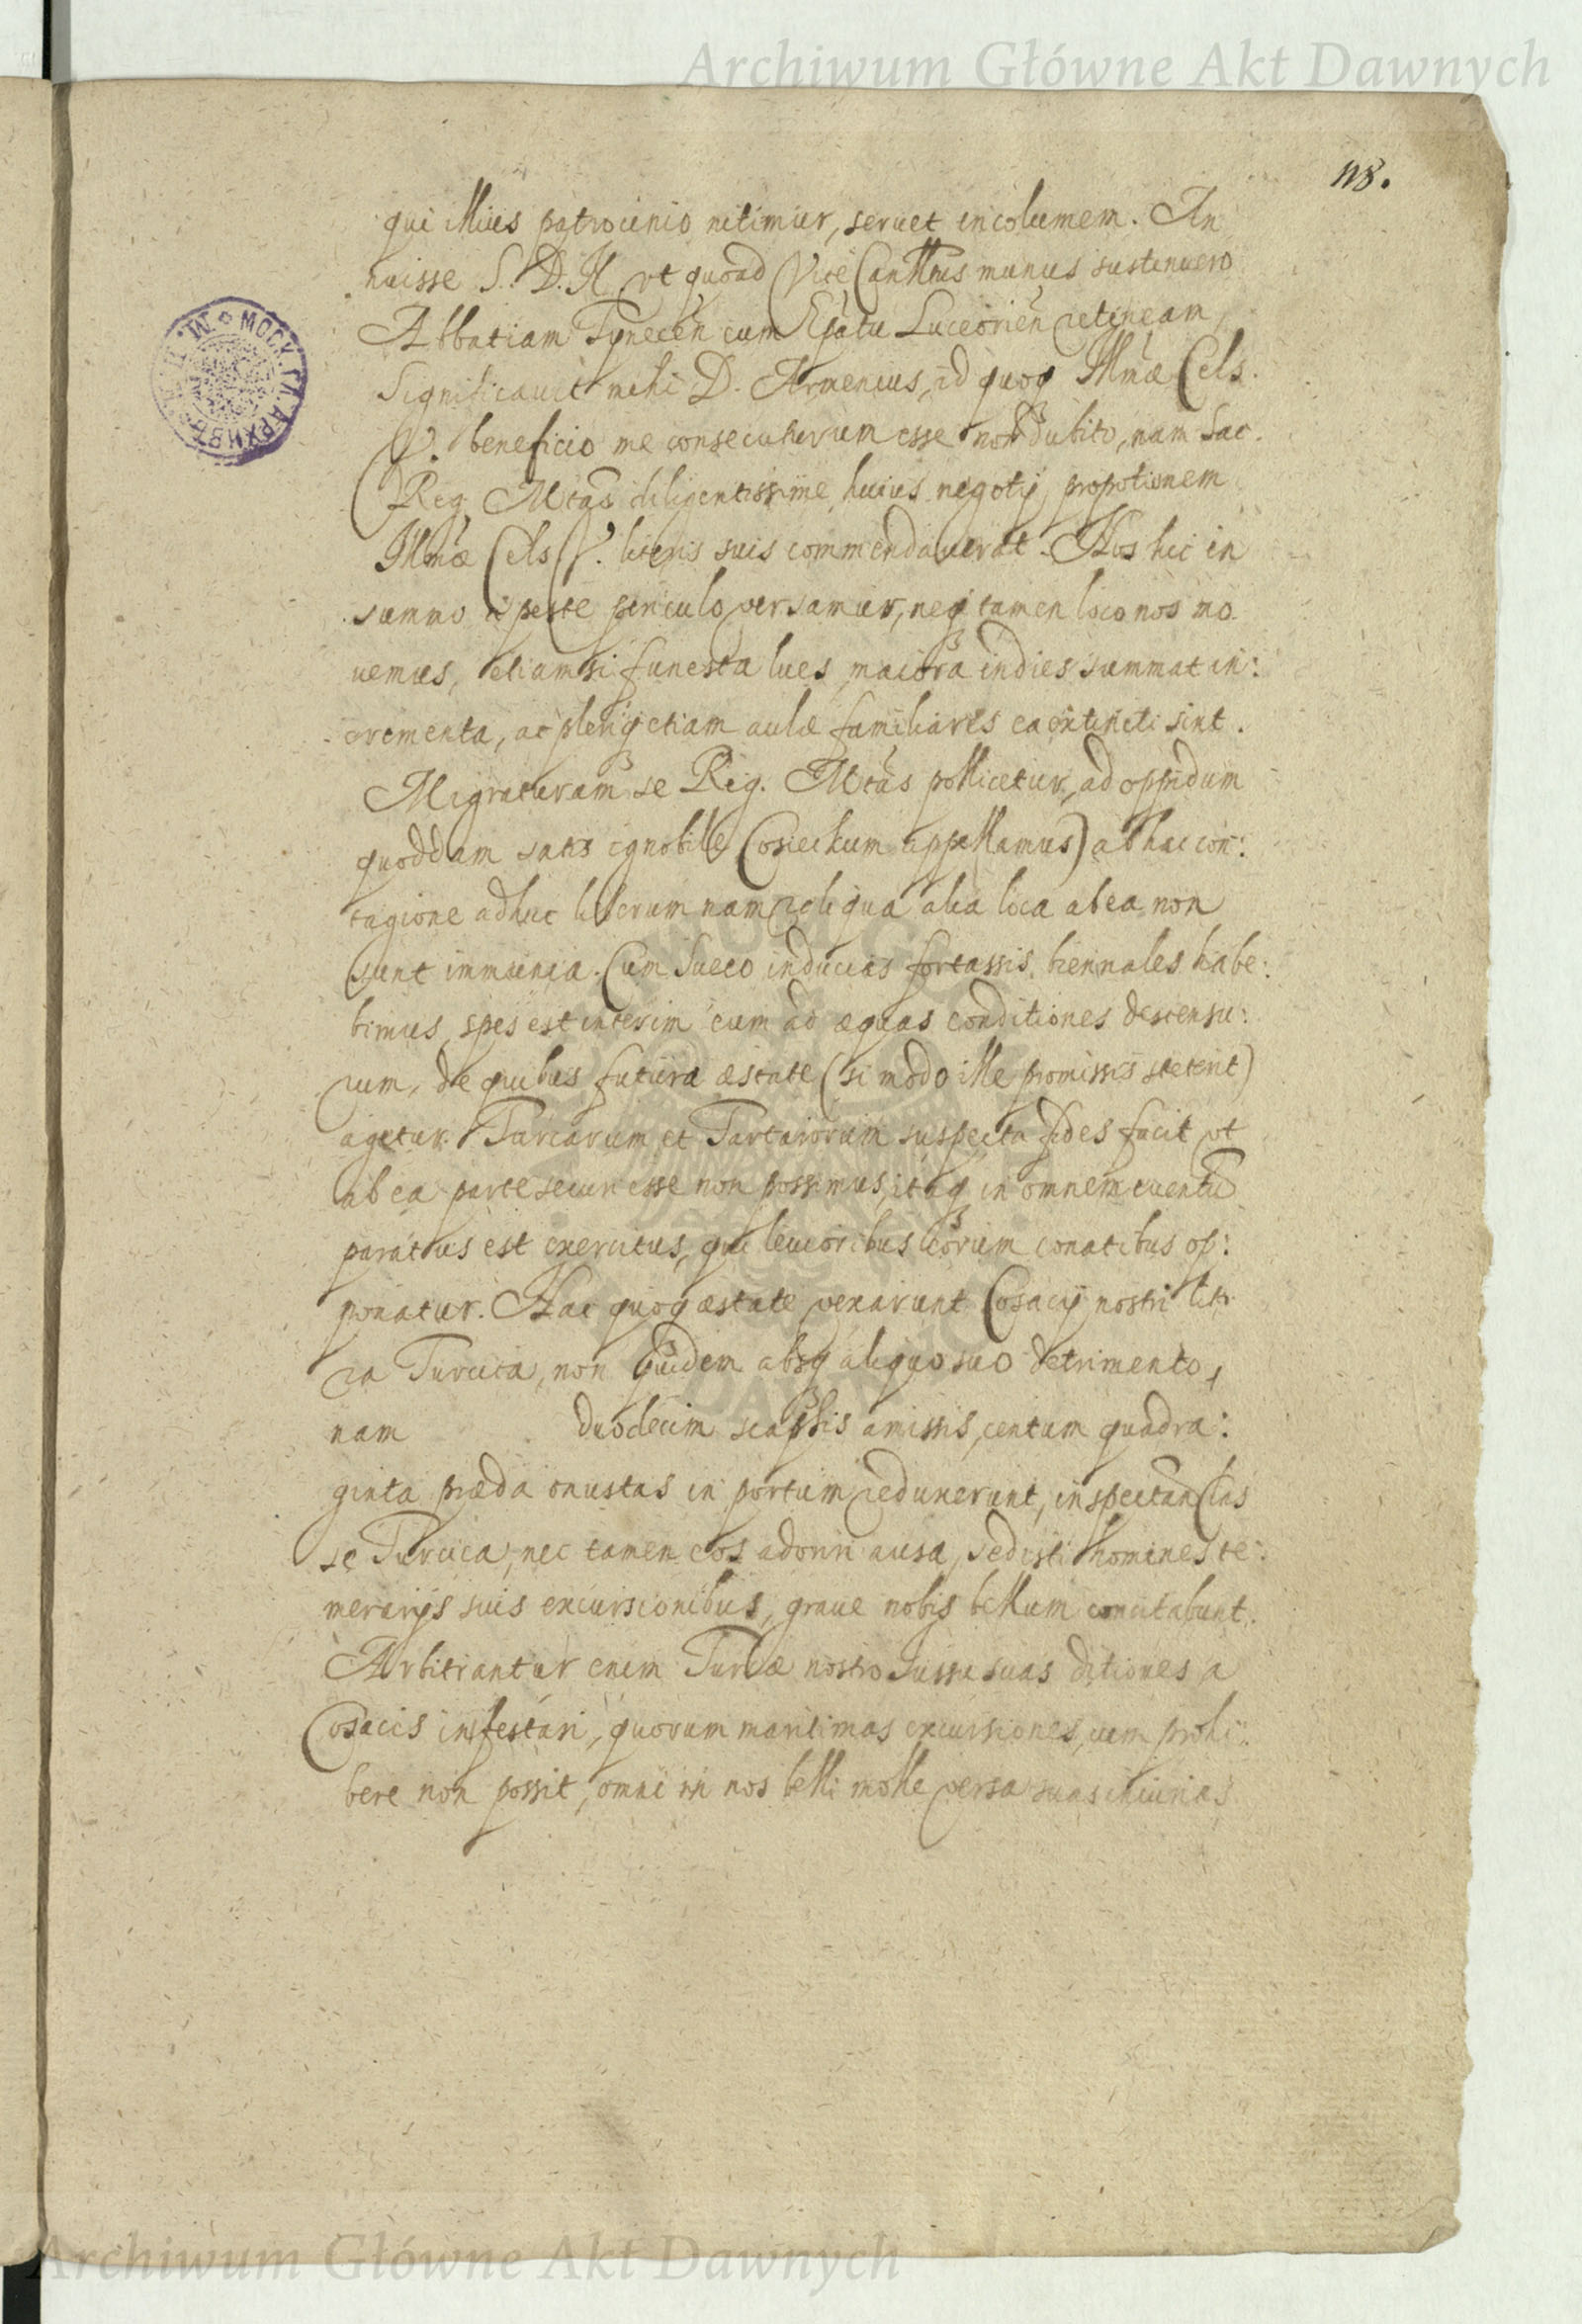 Archiwum Główne Akt Dawnych
118.
qui illius patrocinio nitimur, seruet incolumem. An
nuisse S. D. N. vt quoad Vice Canllrius munus sustinuero
Abbatiam Tynecen cum Epatu Luceorien retineam,
Significauit mihi D. Armenius, id quoq Illmæ Cels.
V. beneficio me consecuturum esse non dubito, nam Sac.
Reg. Mtas diligentissime huius negotij
Illmæ Cels V. literis suis commendauerat. Nos hic in
summo a peste periculo versamur, neq tamen loco nos mo
uemus, etiamsi funesta lues maiora indies summat in:
crementa, ac pleriq etiam aulæ familiares ea extincti sint.
Migraturam se Reg. Mtas pollicetur, ad oppidum
quoddam satis ignobile (Cosieckum appellamus) ab hac con:
tagione adhuc liberum nam reliqua alia loca ab ea non
sunt immunia. Cum Sueco inducias fortassis biennales habe:
bimus, spes est interim eum ad æquas conditiones descensu:
rum, de quibus futura æstate (si modo ille promissis steterit)
agetur. Turcarum et Tartarorum suspecta fides facit vt
ab ea parte securi esse non possimus, itaq in omnem euentu
paratus est exercitus, qui leuioribus eorum conatibus op:
ponatur. Hac quoq æstate vexarunt Cosacij nostri litt
ra Turcica, non quidem absq aliquo suo detrimento,
nam duodecim scaphis amissis, centum quadra:
ginta præda onustas in portum reduxerunt, inspectan Clas
se Turcica, nec tamen eos adoriri ausa, sed isti homines te:
merarijs suis excursionibus, graue nobis bellum concitabunt.
Arbitrantur enim Turcæ nostro Jussu suas ditiones a
Cosacis infestari, quorum maritimas excursiones, cum prohi:
bere non possit, omni in nos belli molle versa suas iniurias
Archiwum Główne Akt Dawnych